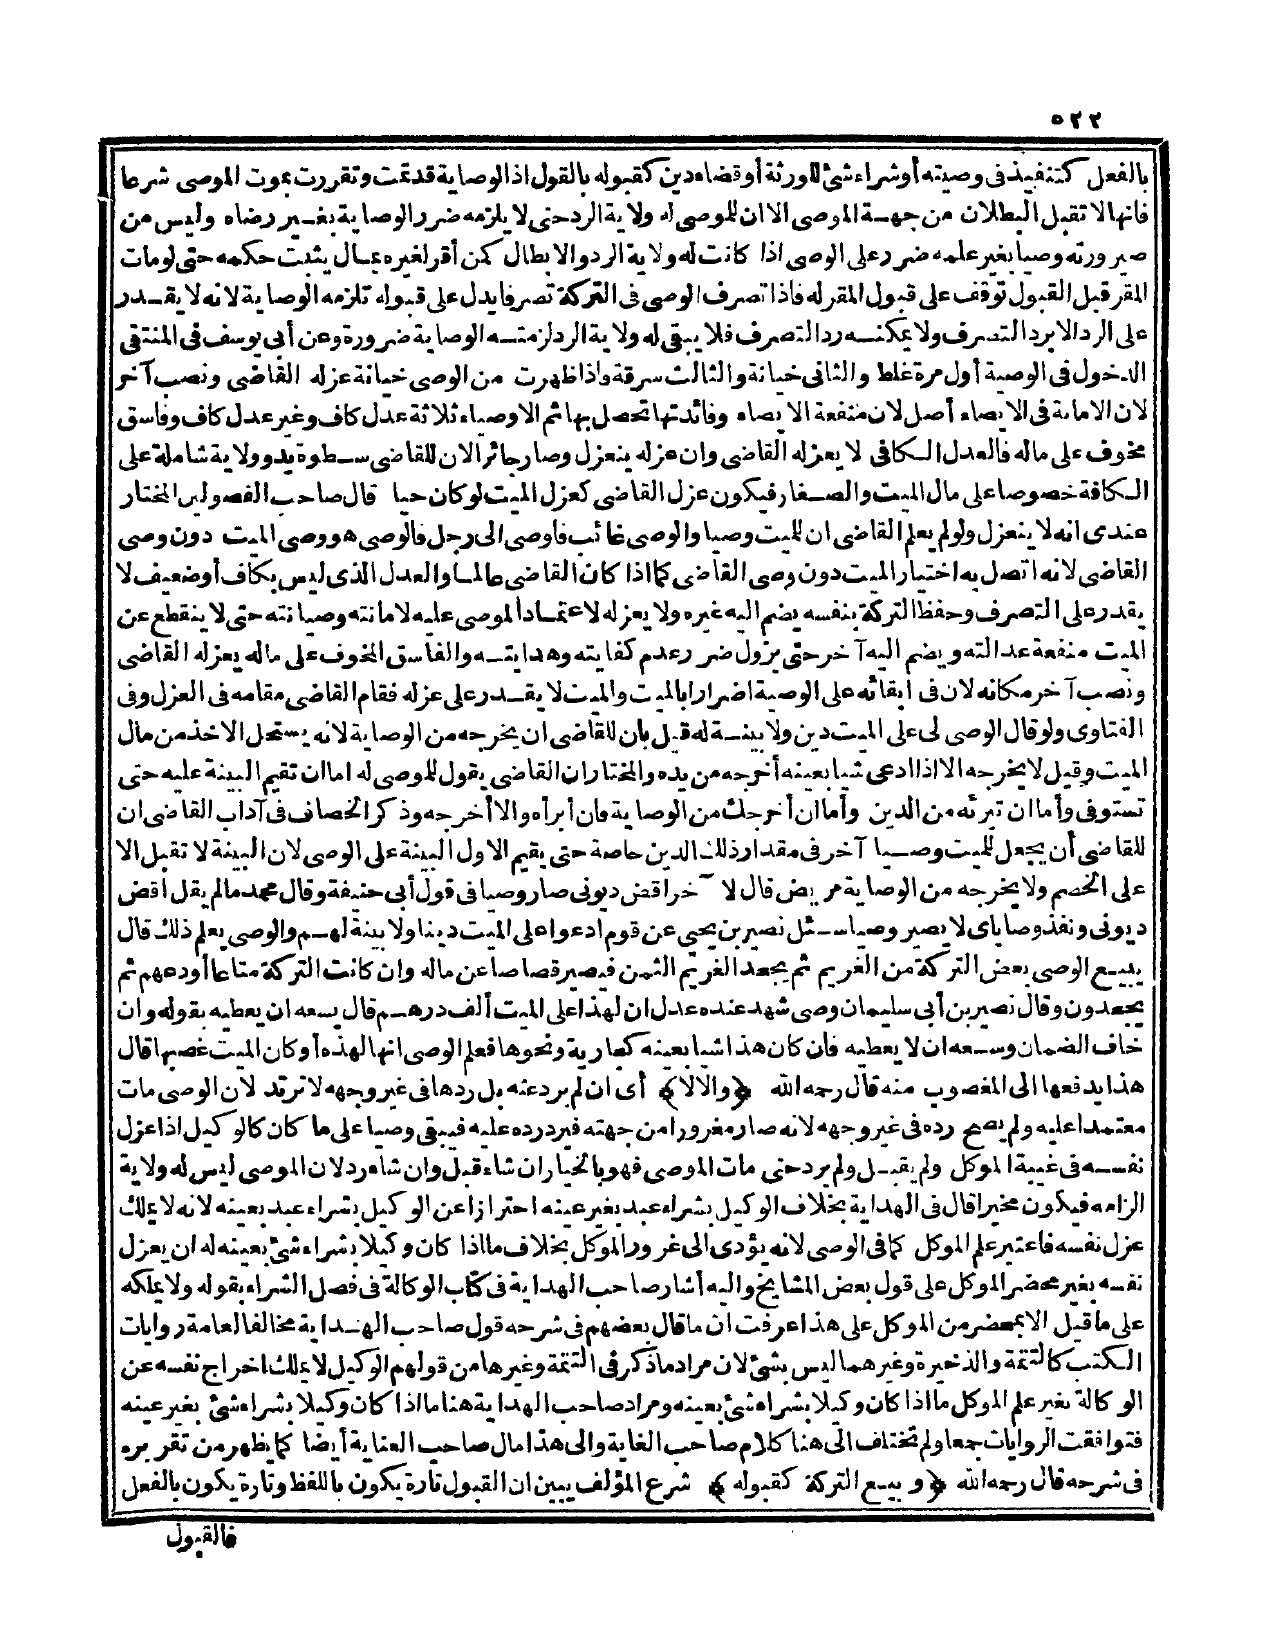 ٥٢٢
بالفعل كتنفيذ فى وصيته أو شراء شئ للورثة أو قضاء دين كقبوله بالقول اذ الوصاية قد تمت وتقررت بموت الموصى شرعا
فانها لا تقبل البطلان من جهة الموصى الا ان للموصى له ولاية الرد حتى لا يلزمه ضرر الوصاية بغير رضاه وليس من
صيرورته وصيا بغير علمه ضرر على الوصى اذا كانت له ولاية الرد والابطال كمن أقر لغيره بمال يثبت حكمه حتى لو مات
المقر قبل القبول توقف على قبول المقر له فاذا تصرف الوصى فى التركة تصرفا يدل على قبوله تلزمه الوصاية لانه لا يقدر
على الرد الا برد التصرف ولا يمكنه رد التصرف فلا يبقى له ولاية الرد لزمته الوصاية ضرورة وعن أبى يوسف فى المنتقى
الدخول فى الوصية أول مرة غلط والثانى خيانة والثالث سرقة واذا ظهرت من الوصى خيانة عزله القاضى ونصب آخر
لان الامانة فى الايصاء أصل لان منفعة الايصاء وفائدتها تحصل بها ثم الاوصياء ثلاثة عدل كاف وغير عدل كاف وفاسق
مخوف على ماله فالعدل الكافى لا يعزله القاضى وان عزله ينعزل وصار جائرا لان للقاضى سطوة يد وولاية شاملة على
الكافة خصوصا على مال الميت والصغار فيكون عزل القاضى كعزل الميت لو كان حيا قال صاحب الفصولين المختار
عندى انه لا ينعزل ولو لم يعلم القاضى ان للميت وصيا والوصى غائب فاوصى الى رجل فالوصى هو وصى الميت دون وصى
القاضى لانه اتصل به اختيار الميت دون وصى القاضى كما اذا كان القاضى عالما والعدل الذى ليس بكاف أو ضعيف لا
يقدر على التصرف وحفظ التركة بنفسه يضم اليه غيره ولا يعزله لاعتماد الموصى عليه لامانته وصيانته حتى لا ينقطع عن
الميت منفعة عدالته ويضم اليه آخر حتى يزول ضرر عدم كفايته وهدايته والفاسق المخوف على ماله يعزله القاضى
ونصب آخر مكانه لان فى ابقائه على الوصية اضرارا بالميت والميت لا يقدر على عزله فقام القاضى مقامه فى العزل وفى
الفتاوى ولو قال الوصى لى على الميت دين ولا بينة له قيل بان للقاضى ان يخرجه من الوصاية لانه يستحل الاخذ من مال
الميت وقيل لا يخرجه الا اذا ادعى شيا بعينه أخرجه من يده والمختار ان القاضى يقول للموصى له اما ان تقيم البينة عليه حتى
تستوفى وأما ان تبرئه من الدين وأما ان أخرجك من الوصاية فان أبرأه والا أخرجه وذكر الخصاف فى آداب القاضى ان
للقاضى أن يجعل للميت وصيا آخر فى مقدار ذلك الدين خاصة حتى يقيم الاول البينة على الوصى لان البينة لا تقبل الا
على الخصم ولا يخرجه من الوصاية مريض قال لآخر اقض ديونى صار وصيا فى قول أبى حنيفة وقال محمد ما لم يقل أقض
ديونى ونفذ وصاياى لا يصير وصيا سئل نصير بن يحيى عن قوم ادعوا على الميت دينا ولا بينة لهم والوصى يعلم ذلك قال
يبيع الوصى بعض التركة من الغريم ثم يجحد الغريم الثمن فيصير قصاصا عن ماله وان كانت التركة متاعا أودعهم ثم
يجحدون وقال نصير بن أبى سليمان وصى شهد عنده عدل ان لهذا على الميت ألف درهم قال يسعه ان يعطيه بقوله وان
خاف الضمان وسعه ان لا يعطيه فان كان هذا شيا بعينه كعارية ونحوها فعلم الوصى انها لهذه أو كان الميت غصبها قال
هذا يدفعها الى المغصوب منه قال رحمه الله ﴿والا لا﴾ أى ان لم يرد عنه بل ردها فى غير وجهه لا ترتد لان الوصى مات
معتمدا عليه ولم يصح رده فى غير وجهه لانه صار مغرورا من جهته فيرد رده عليه فيبقى وصيا على ما كان كالوكيل اذا عزل
نفسه فى غيبة الموكل ولم يقبل ولم يرد حتى مات الموصى فهو بالخيار ان شاء قبل وان شاء رد لان الموصى ليس له ولاية
الزامه فيكون مخيرا قال فى الهداية بخلاف الوكيل بشراء عبد بغير عينه احترازا عن الوكيل بشراء عبد بعينه لانه لا يملك
عزل نفسه فاعتبر علم الموكل كما فى الوصى لانه يؤدى الى غرور الموكل بخلاف ما اذا كان وكيلا بشراء شئ بعينه له ان يعزل
نفسه بغير محضر الموكل على قول بعض المشايخ واليه أشار صاحب الهداية فى كتاب الوكالة فى فصل الشراء بقوله ولا يملكه
على ما قيل الا بمحضر من الموكل على هذا عرفت ان ما قال بعضهم فى شرحه قول صاحب الهداية مخالفا لعامة روايات
الكتب كالتتمة والذخيرة وغيرهما ليس بشئ لان مراد ما ذكر فى التتمة وغيرها من قولهم الوكيل لا يملك اخراج نفسه عن
الوكالة بغير علم الموكل ما اذا كان وكيلا بشراء شئ بعينه ومراد صاحب الهداية هنا ما اذا كان وكيلا بشراء شئ بغير عينه
فتوافقت الروايات جمعا ولم تختلف الى هنا كلام صاحب الغاية والى هذا مال صاحب العناية أيضا كما يظهر من تقريره
فى شرحه قال رحمه الله ﴿وبيع التركة كقبوله﴾ شرع المؤلف يبين ان القبول تارة يكون باللفظ وتارة يكون بالفعل
فالقبول